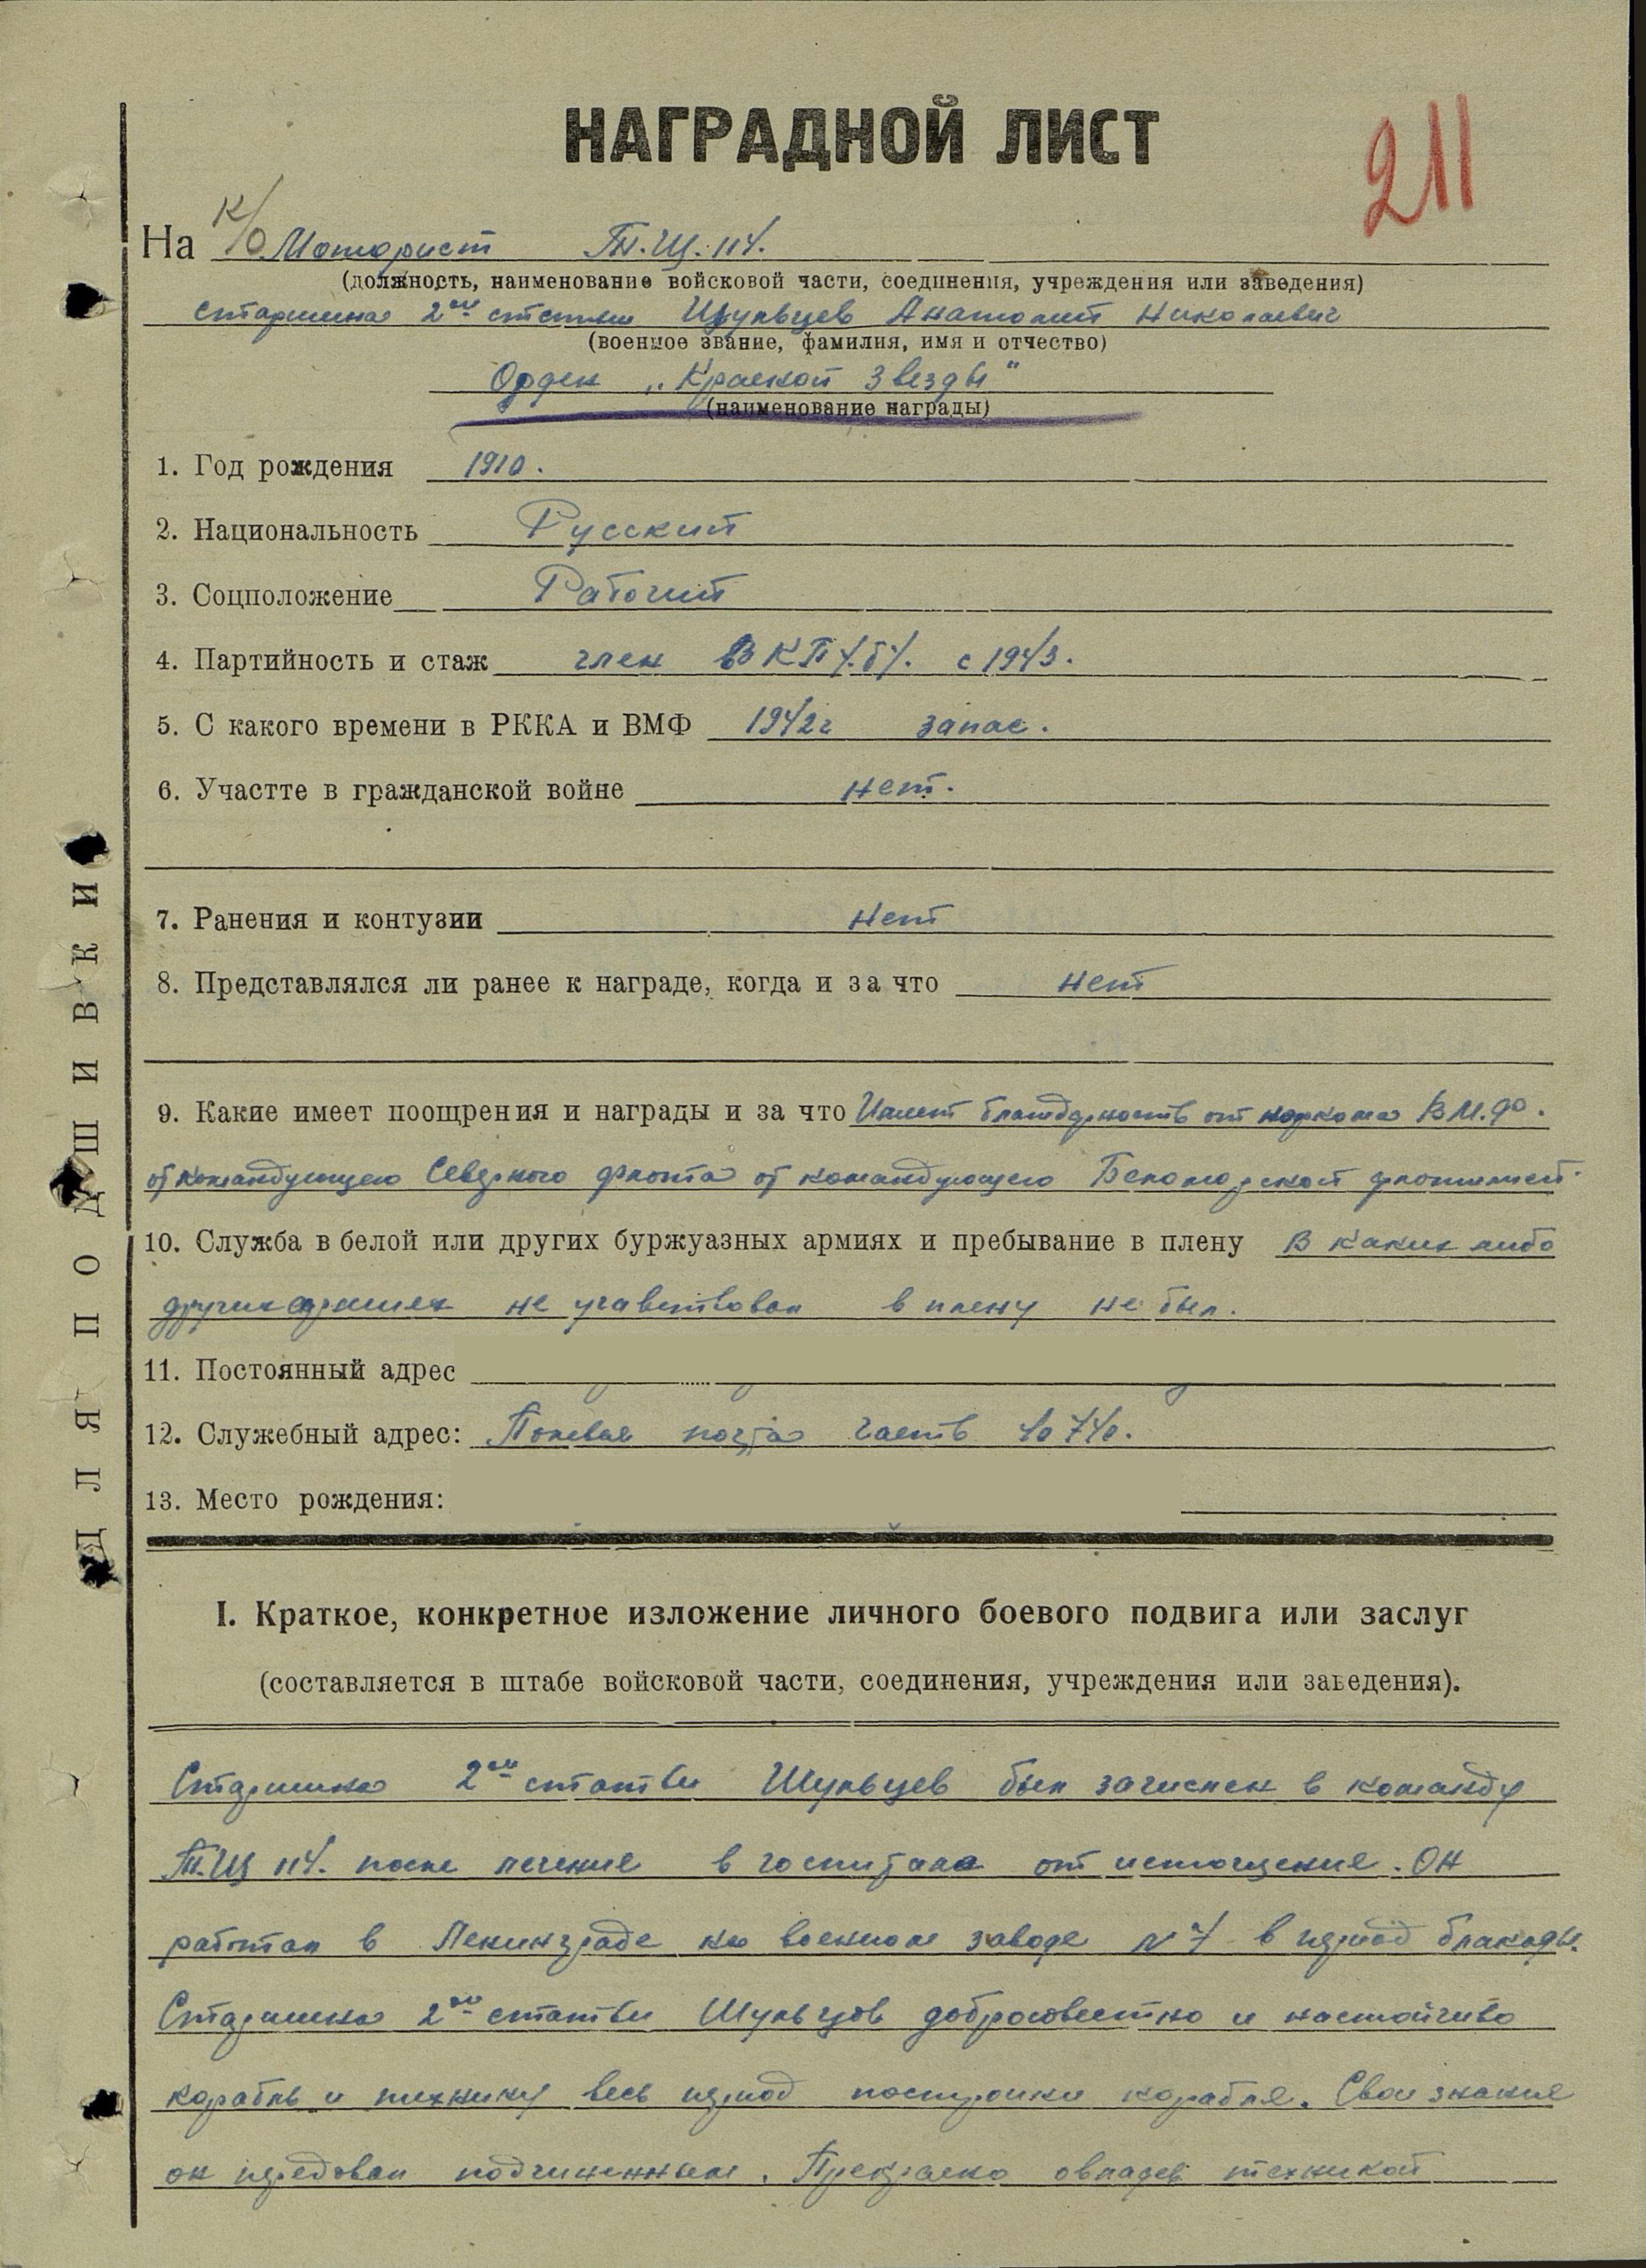 НАГРАДНОЙ ЛИСТ
211
На К/О Моторист Т.Щ. 114.
(должность, наименование войсковой части, соединения, учреждения или заведения)
старшина 2ой статьи Шульцев Анатолий Николаевич
(военное звание, фамилия, имя и отчество)
Орден „Красной Звезды"
(наименование награды)
1. Год рождения 1910.
2. Национальность Русский
3. Соцположение Рабочий
4. Партийность и стаж член ВКП/б/. с 1943.
5. С какого времени в РККА и ВМФ 1942г запас.
6. Участте в гражданской войне нет.
7. Ранения и контузии нет
8. Представлялся ли ранее к награде, когда и за что нет
9. Какие имеет поощрения и награды и за что Имеет благодарность от наркома В.М.Ф.
от командующего Северного флота от командующего Беломорской флотилией.
10. Служба в белой или других буржуазных армиях и пребывание в плену В каких либо
других армиях не учавствовал в плену не был.
11. Постоянный адрес
12. Служебный адрес: Полевая почта часть 40740.
13. Место рождения:
I. Краткое, конкретное изложение личного боевого подвига или заслуг
(составляется в штабе войсковой части, соединения, учреждения или заведения).
Старшина 2ой статьи Шульцев был зачислен в команду
Т.Щ 114. после лечения в госпитале от истощения. Он
работал в Ленинграде на военном заводе №7 в период блакады.
Старшина 2ой статьи Шульцов добросовестно и настойчиво
корабль и технику весь период постройки корабля. Свои знания
он передовал подчиненным. Прекрасно овладев техникой
ДЛЯ ПОДШИВКИ